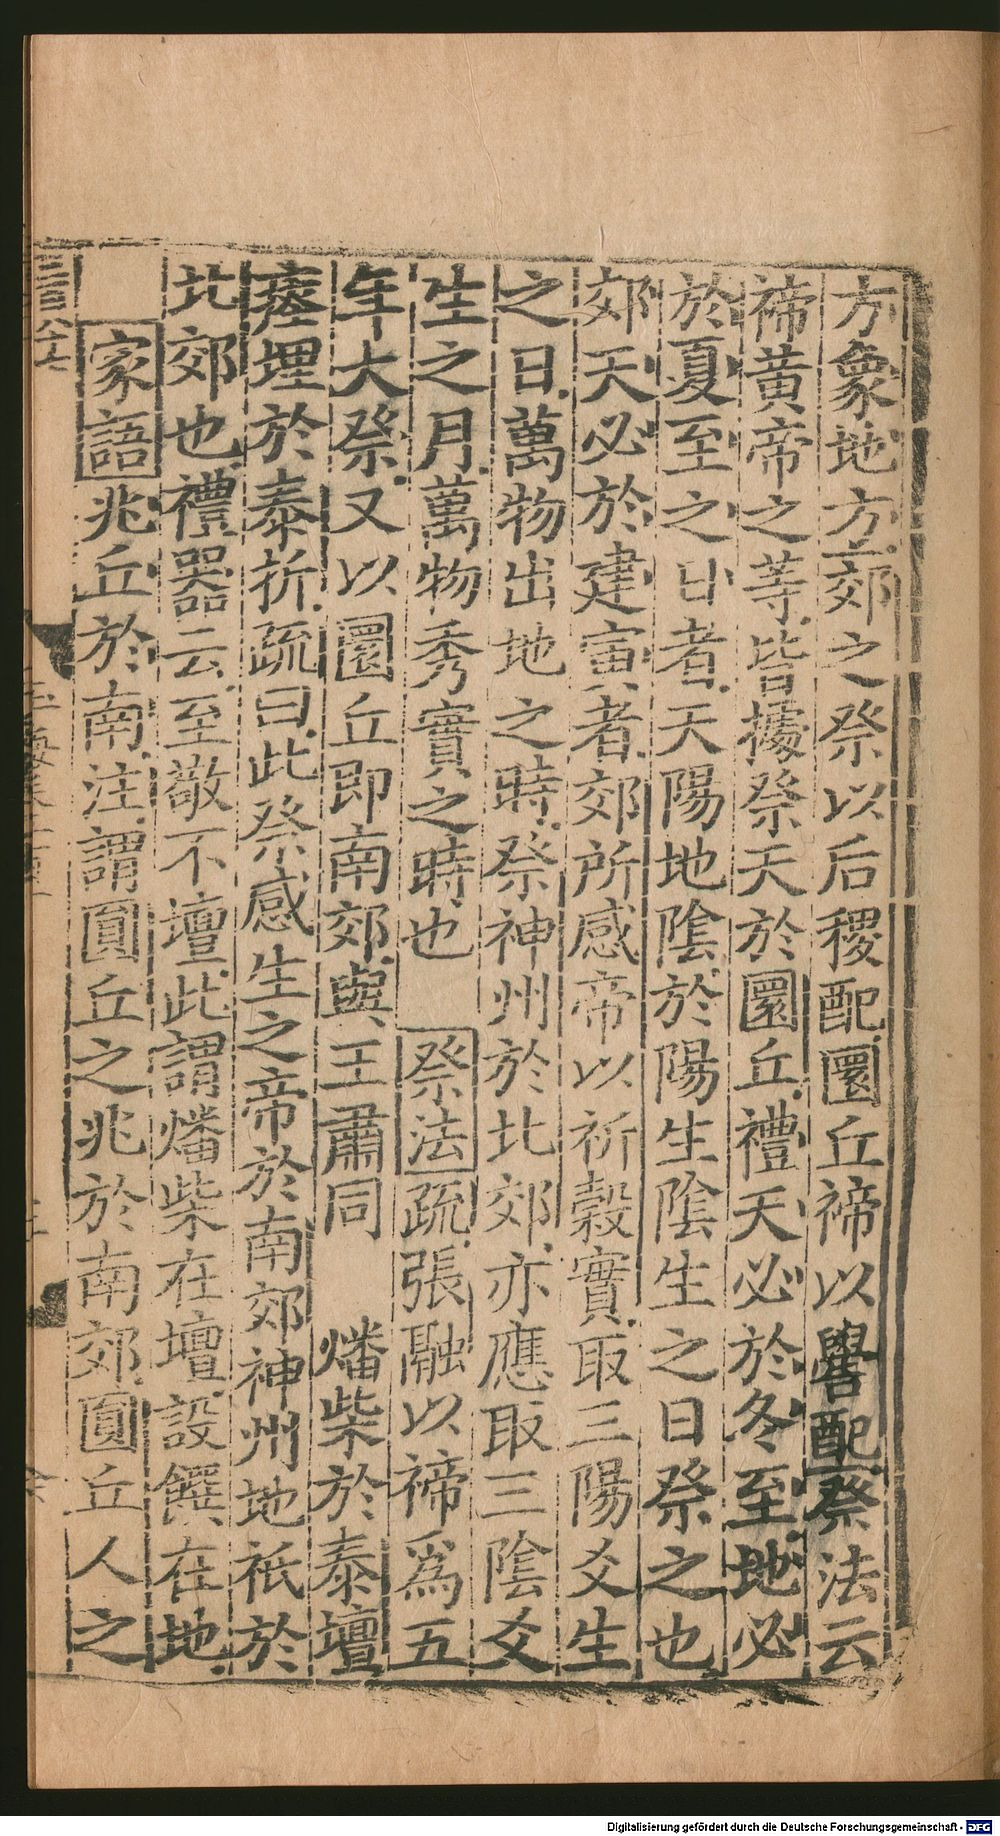 方象地方郊之祭以后稷配圜丘禘以嚳配祭法云
禘黃帝之等皆據祭天於圜丘禮天必於冬至地必
於夏至之日者天陽地陰於陽生陰生之日祭之也
郊天必於建寅者郊所感帝以祈穀實取三陽爻生
之日萬物出地之時祭神州於北郊亦應取三陰爻
生之月萬物秀實之時也 祭法疏張融以禘為五
年大祭又以圜丘即南郊與王肅同 燔柴於泰壇
瘞埋於泰折疏曰此祭感生之帝於南郊神州地祇於
北郊也禮器云至敬不壇此謂燔柴在壇設饌在地
家語兆丘於南注謂圓丘之兆於南郊圓丘人之
Digitalisierung gefördert durch die Deutsche Forschungsgemeinschaft - DFG